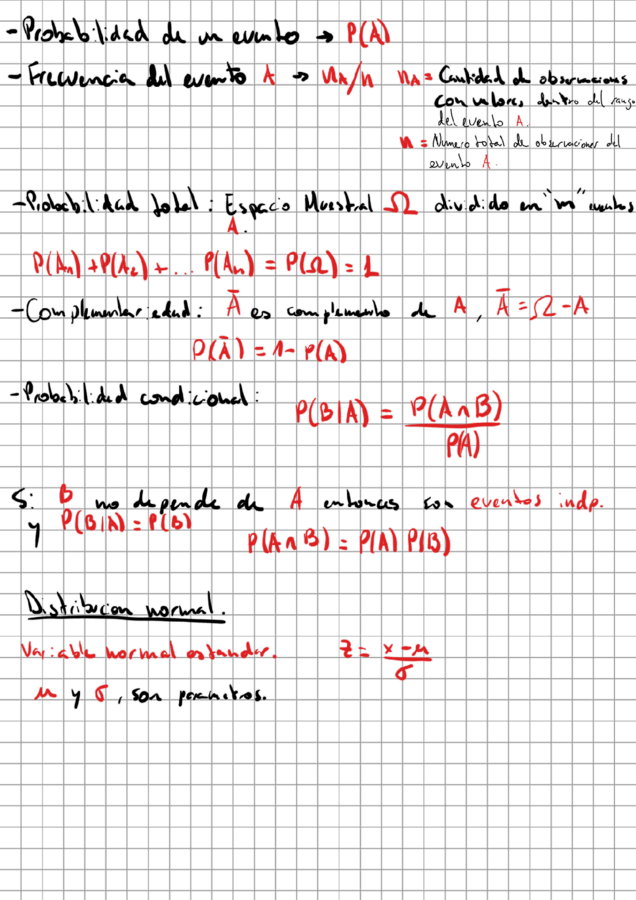 - Probabilidad de un evento → P(A)
- Frecuencia del evento A → nA/n nA = Cantidad de observaciones
con valores dentro del rango
del evento A.
n = Numero total de observaciones del
evento A.
- Probabilidad total : Espacio Muestral Ω dividido en "m" eventos
A.
P(A₁) + P(A₂) + ... P(Aₙ) = P(Ω) = 1
- Complementariedad : Ā es complemento de A, Ā = Ω - A
P(Ā) = 1 - P(A)
- Probabilidad condicional : P(B|A) = P(A∩B)/P(A)
Si B no depende de A entonces son eventos indp.
y P(B|A) = P(B) P(A∩B) = P(A) P(B)
Distribucion normal.
Variable normal estandar. z = (x-μ)/σ
μ y σ, son parametros.